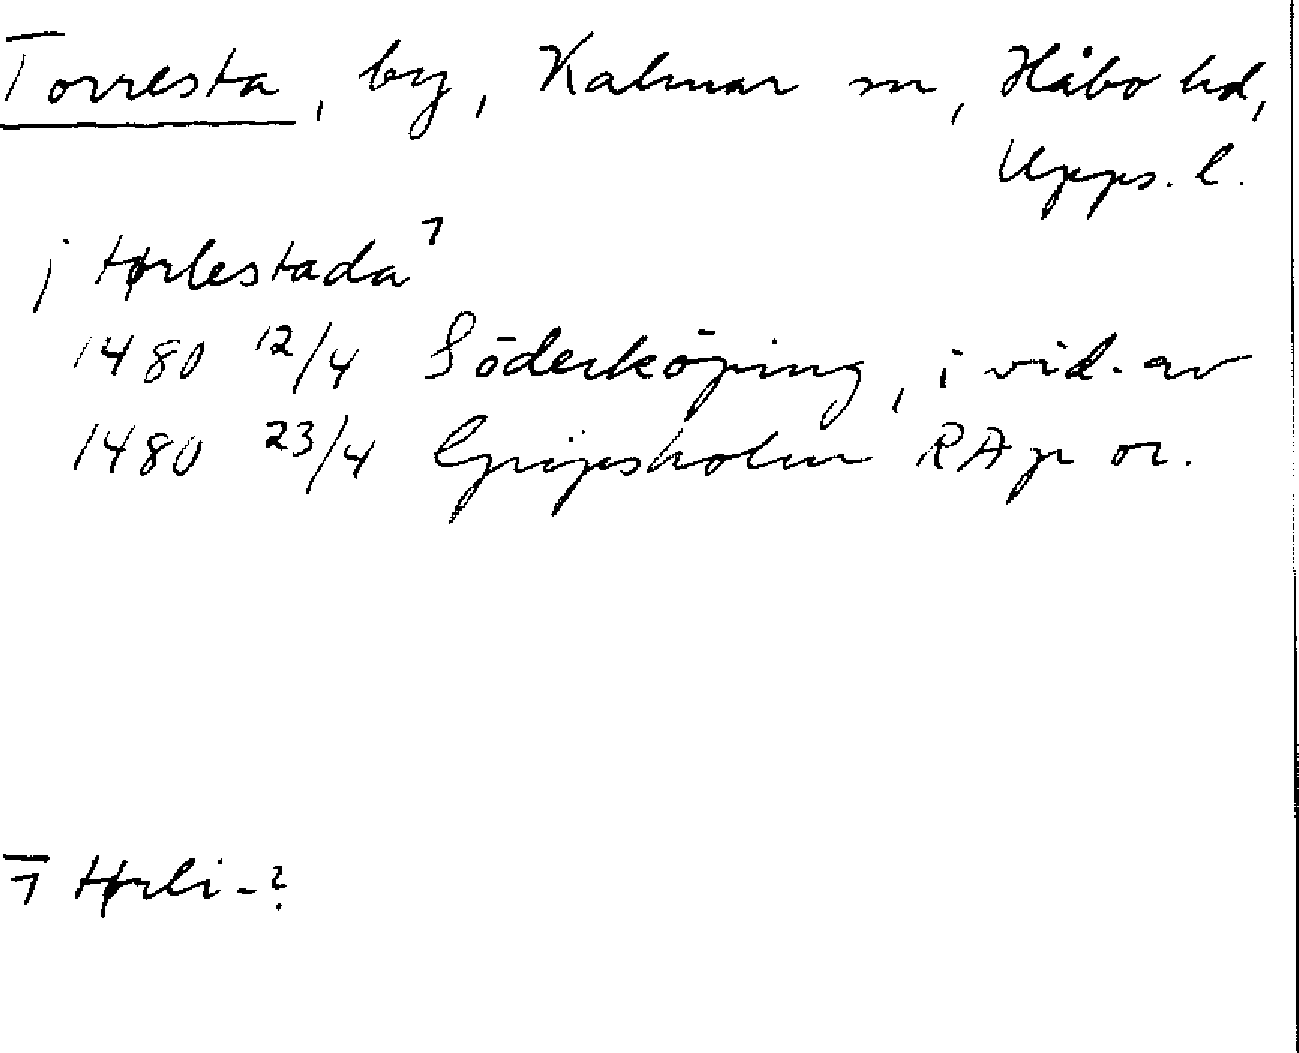 Torresta, by, Kalmar sn, Håbo hd,
Upps. l.
j tørlestada ⁊
1480 12/4 Söderköping, i vid. av
1480 23/4 Gripsholm RAp or.
⁊ tørli-?